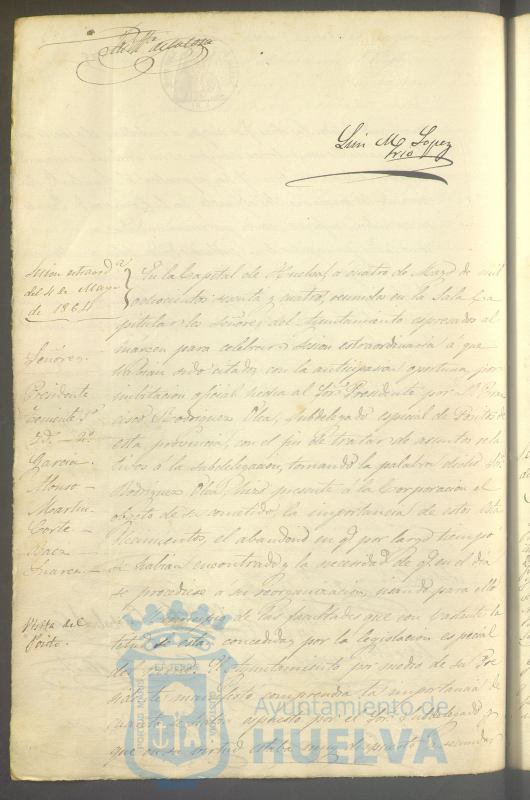 Luis M. Lopez
Srio
Sesion extraord.ª
del 4 de Mayo
de 1864
Señores.
Presidente
Teniente 1º
2º — 4º
Garcia —
Alonso —
Martin —
Corte —
Baca —
Suarez —
Visita del
Pósito.
En la Capital de Huelva, á cuatro de Mayo de mil
ochocientos sesenta y cuatro, reunidos en la Sala Ca
pitular los Señores del Ayuntamiento espresados al
márgen para celebrar sesion estraordinaria á que
habian sido citados con la anticipacion oportuna por
invitacion oficial hecha al Sor. Presidente por D. Fran
cisco Rodriguez Olea, Subdelegado especial de Pósitos de
esta provincia, con el fin de tratar de asuntos rela
tivos á la Subdelegacion, tomando la palabra dicho Sr.
Rodriguez Olea, hizo presente á la Corporacion el
objeto de su cometido, la importancia de estos esta
blecimientos, el abandono en q.e por largo tiempo
se habian encontrado y la necesidad de q.e en el dia
se procediese á su reorganizacion, usando para ello
de las facultades que con bastante la
titud le estan concedidas por la legislacion especial
Ayuntamiento por medio de su Pre
sidente manifestó comprendia la importancia de
cuanto espuesto por el Sor. Subdelegado y
que en su virtud estaba muy dispuesto á secundar
Ayuntamiento de
HUELVA